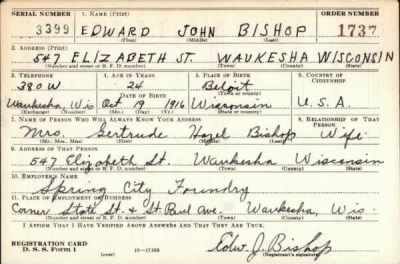 SERIAL NUMBER 1. NAME (Print) ORDER NUMBER
3399 EDWARD JOHN BISHOP 1737
(First) (Middle) (Last)
2. ADDRESS (Print)
547 ELIZABETH ST. WAUKESHA WISCONSIN
(Number and street or R. F. D. number) (Town) (County) (State)
3. TELEPHONE 4. AGE IN YEARS 5. PLACE OF BIRTH 6. COUNTRY OF CITIZENSHIP
380 W 24 Beloit
DATE OF BIRTH (Town or county)
Waukesha, Wis Oct 19 1916 Wisconsin U.S.A.
(Exchange) (Number) (Mo.) (Day) (Yr.) (State or country)
7. NAME OF PERSON WHO WILL ALWAYS KNOW YOUR ADDRESS 8. RELATIONSHIP OF THAT PERSON
Mrs. Gertrude Hazel Bishop Wife
(Mr., Mrs., Miss) (First) (Middle) (Last)
9. ADDRESS OF THAT PERSON
547 Elizabeth St. Waukesha Wisconsin
(Number and street or R. F. D. number) (Town) (County) (State)
10. EMPLOYER'S NAME
Spring City Foundry
11. PLACE OF EMPLOYMENT OR BUSINESS
Corner State St. & St. Paul Ave. Waukesha, Wis.
(Number and street or R. F. D. number) (Town) (County) (State)
I AFFIRM THAT I HAVE VERIFIED ABOVE ANSWERS AND THAT THEY ARE TRUE.
REGISTRATION CARD
D. S. S. Form 1 (over) Edw. J. Bishop
(Registrant's signature)